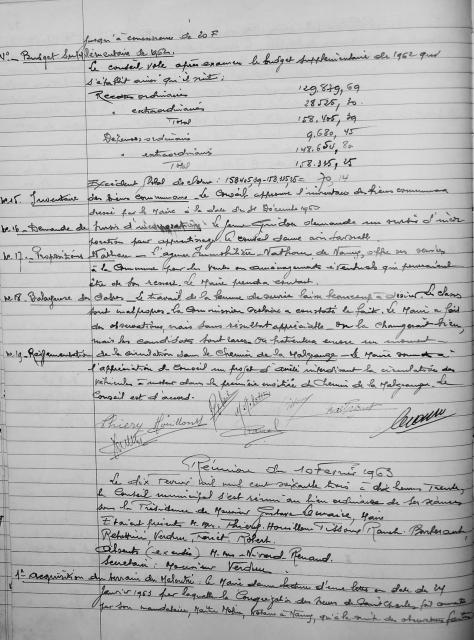 jusqu'à concurrence de 20 F
V°- Budget Supplémentaire de 1962.
Le Conseil vote après examen le budget supplémentaire de 1962 qui
s'établit ainsi qu'il suit :
Recettes ordinaires 129.879,69
" extraordinaires 28525,70
Total 158.405,39
Dépenses ordinaires 9.680,45
" extraordinaires 148.654,80
Total 158.335,25
Excédent 158405,39-158.335,25 = 70,14
N°15. Inventaire des biens communaux. Le Conseil approuve l'inventaire des biens communaux
dressé par le Maire à la date du 31 Décembre 1960
N°16. Demande de Le Jeune demande un
pour apprentissage. Le Conseil donne avis favorable
N°17. Propositions Nathan l'agence Immobilière Nathan de Nancy, offre ses services
à la Commune pour la vente ou aménagements éventuels qui pourraient
être de son ressort. Le Maire prendra contact.
N°18. Balayeuse des Salles. Le travail de la femme de service laisse beaucoup à désirer. Les classes
sont malpropres. La Commission Scolaire a constaté le fait. Le Maire a fait
des observations, mais sans résultat appréciable. On la changerait bien,
mais les candidats sont rares. On patientera encore un moment.
N°19. Réglementation de la circulation dans le Chemin de la Malgrange. Le Maire soumet à
l'appréciation du Conseil un projet d'arrêté interdisant la circulation des
véhicules à moteur dans la première moitié du Chemin de la Malgrange. Le
Conseil est d'accord.
Thiery Houillon
Réunion du 10 Février 1963
Le dix Février mil neuf cent soixante trois à dix heures trente,
le Conseil municipal s'est réuni au lieu ordinaire de ses séances
sous la Présidence de Monsieur Lemaire, Maire
Etaient présents M. MM. Thiery. Houillon. Tissour
Verdun Robert.
Absents (excusés) M. MM. Renard.
Secrétaire : Monsieur Verdun
1°- acquisition du terrain du le Maire donne lecture d'une lettre en date du 24
janvier 1963 par laquelle la Congrégation des Soeurs de Saint Charles fait connaître
par son mandataire, Maître Notaire à Nancy, qu'à la suite des observations faites